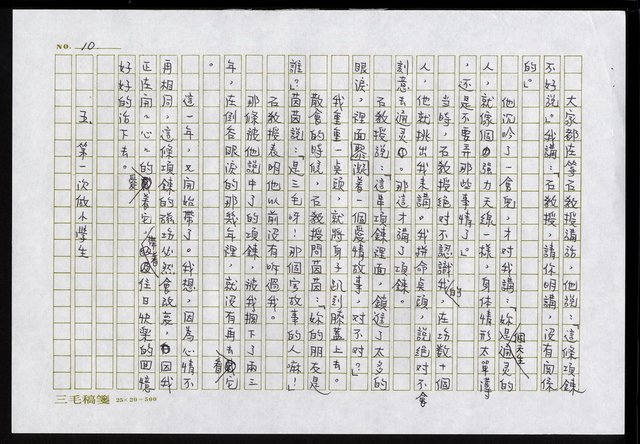 NO. 10
大家都在等石教授講話，他說：「這條項鍊
不好說。」我講：「石教授，請你明講，沒有關係
的。」
他沉吟了一會兒，才對我講：「妳是個天生通灵的
人，就像個強力天線一樣，身体情形太單薄
，还是不要弄那些事情了。」
當時，石教授絕对不認識我的，在场數十個
人，他就挑出我來講。我拼命点頭，說絕对不會
刻意去通灵。那這才講了項鍊。
石教授說：「這串項鍊裡面，鎖進了太多的
眼淚，裡面凝着一個愛情故事，對不对？」
我重重一点頭，就將身子趴到膝蓋上去。
散會的時候，石教授問茵茵：「妳的朋友是
誰？」茵茵說：「是三毛呀！那個寫故事的人嘛！」
石教授表明他以前沒有听過我。
那條被他說中了的項鍊，被我擱下了兩三
年，在倒吞眼淚的那幾年裡，就沒有再去看它
。
這一年，又開始帶了。我想，因為心情不
再相同，這條項鍊的磁场必然會改哀，因我
正在開心的愛着它，帶着往日快樂的回憶
好好的活下去。
五、第一次做小学生
三毛稿箋 25×20=500